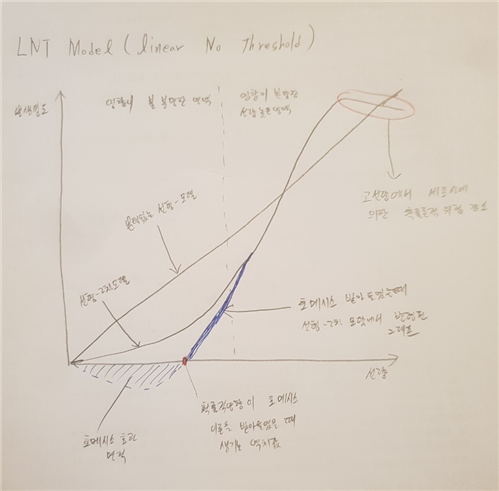 LNT Model (linear No Threshold)
발생빈도
영향이 불 분명한 영역
영향이 분명한
선량 높은 영역
문턱없는 선형-모델
선형-2차모델
고선량에서 세포사에
의한 확률론적 위험 감소
호메시스 받아 드렸을때
선형-2차 모델에서 변형된
그래프
선량
호메시스 효과
면적
확률적영향이 호메시스
이론을 받아들였을 때
생기는 역치점